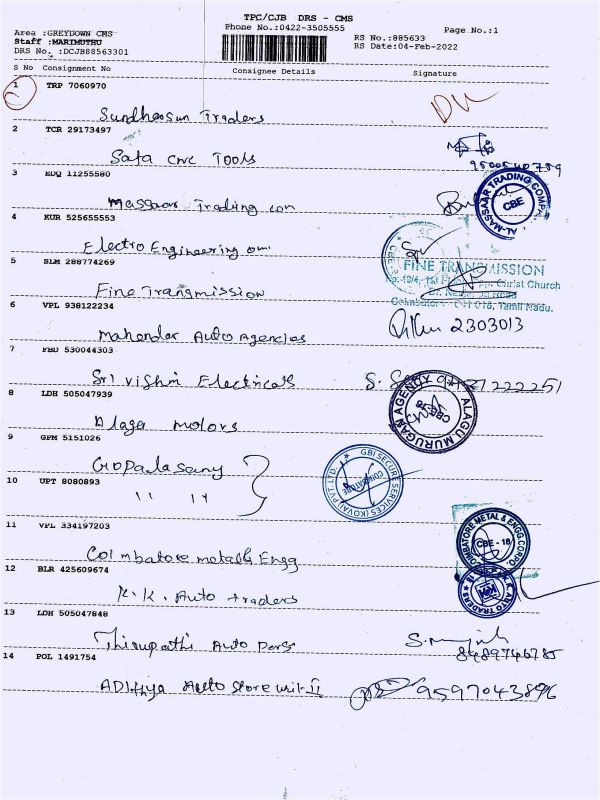 TPC/CJB DRS - CMS
Phone No.:0422-3505555
Page No.:1
Area :GREYDOWN CMS
Staff :MARIMUTHU
DRS No. :DCJB88563301
RS No.:885633
RS Date:04-Feb-2022
S No Consignment No Consignee Details Signature
1 TRP 7060970
Traders
2 TCR 29173497
Safa CNC Tools
9500540759
3 EDQ 11255580
Massaar Trading com
AL-MASSAAR TRADING COMPA
CBE
4 KUR 525655553
Electro Engineering
5 SLM 288774269
Fine Transmission
FINE TRANSMISSION
Christ Church
Coimbatore 641 018, Tamil Nadu.
6 VPL 938122234
Mahendar Auto Agencies
2303013
7 FBD 530044303
Sri Vishnu Electricals
8 LDH 505047939
Alagu motors
ALAGU MURUGAN AGENCY
CBE-18
9 GPM 5151026
Gopalasamy
10 UPT 8080893
" "
GBI SECURE SERVICES (KOVAI) PVT. LTD.
COIMBATORE
11 VPL 334197203
Coimbatore metal & Engg
COIMBATORE METAL & ENGG CORPO.
CBE - 18
12 BLR 425609674
K.K. Auto traders
K.K. AUTO TRADERS
13 LDH 505047848
Thirupathi Auto Pars
8489746785
14 POL 1491754
ADithya Auto Store unit-II 9597043896